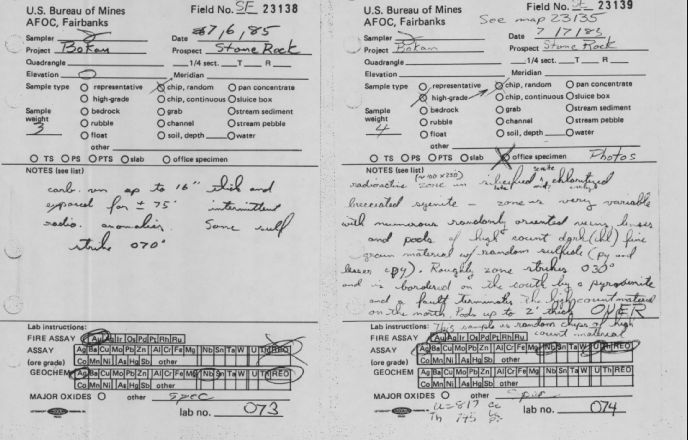 U.S. Bureau of Mines
AFOC, Fairbanks
Field No. SF 23138
Sampler
Date 7/6/85
Project Bokan
Prospect Stone Rock
Quadrangle 1/4 sect. T R
Elevation Meridian
Sample type representative chip, random pan concentrate
high-grade chip, continuous sluice box
Sample weight 3
bedrock grab stream sediment
rubble channel stream pebble
float soil, depth water
other
TS PS PTS slab office specimen
NOTES (see list)
carb. vein up to 16" thick and
exposed for ± 75' intermittent
radio. anomalies. Some sulf
strike 070°
Lab instructions:
FIRE ASSAY Au Ag Ir Os Pd Pt Rh Ru
ASSAY Ag Ba Cu Mo Pb Zn Al Cr Fe Mg Nb Sn Ta W U Th REO
(ore grade) Co Mn Ni As Hg Sb other
GEOCHEM Ag Ba Cu Mo Pb Zn Al Cr Fe Mg Nb Sn Ta W U Th REO
Co Mn Ni As Hg Sb other
MAJOR OXIDES other spec
lab no. 073
U.S. Bureau of Mines
AFOC, Fairbanks
Field No. SF 23139
See map 23135
Sampler
Date 7/7/85
Project Bokan
Prospect Stone Rock
Quadrangle 1/4 sect. T R
Elevation Meridian
Sample type representative chip, random pan concentrate
high-grade chip, continuous sluice box
Sample weight 4
bedrock grab stream sediment
rubble channel stream pebble
float soil, depth water
other
TS PS PTS slab office specimen Photos
NOTES (see list)
radioactive zone in silicified chloritized
brecciated syenite – zone is very variable
with numerous randomly oriented veins lenses
and pods of high count dark (chl) fine
grain material w/ random sulfide (py and
lesser cpy). Roughly zone strikes 030°
and is bordered on the south by a pyroxenite
and a fault terminates the high count material
on the north. Pods up to 2' thick OVER
Lab instructions: This sample is random chips of high
count material
FIRE ASSAY Au Ag Ir Os Pd Pt Rh Ru
ASSAY Ag Ba Cu Mo Pb Zn Al Cr Fe Mg Nb Sn Ta W U Th REO
(ore grade) Co Mn Ni As Hg Sb other
GEOCHEM Ag Ba Cu Mo Pb Zn Al Cr Fe Mg Nb Sn Ta W U Th REO
Co Mn Ni As Hg Sb other
MAJOR OXIDES other spec
U = 817
Th 175
lab no. 074